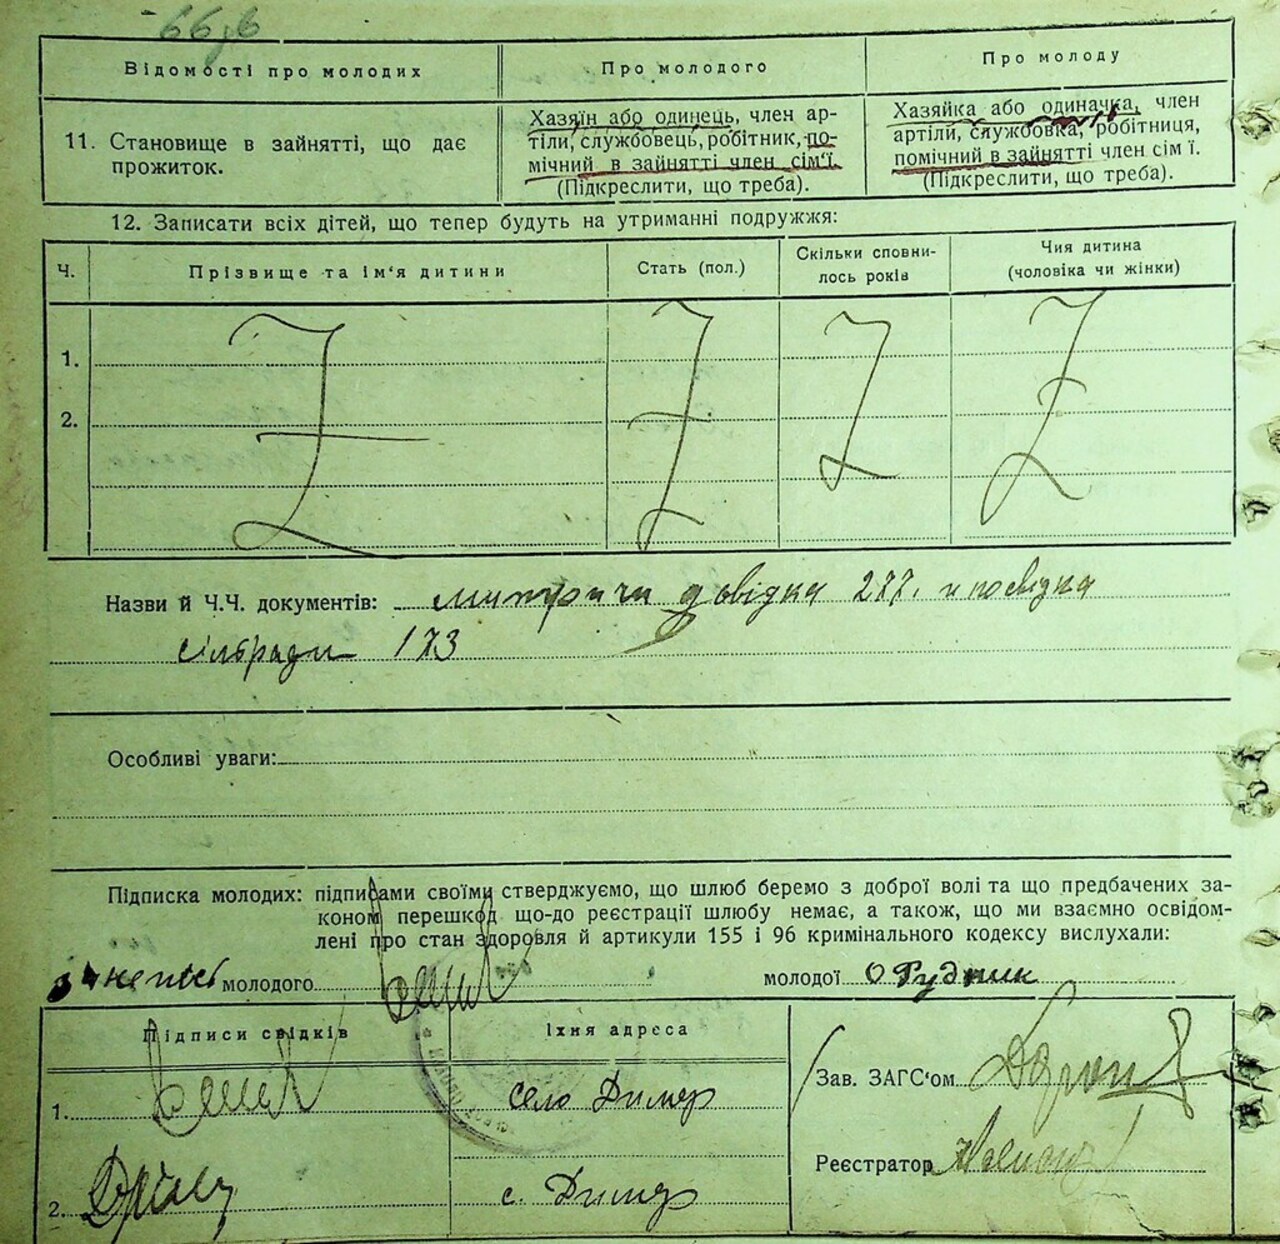 66зв
Відомості про молодих
Про молодого
Про молоду
11. Становище в зайнятті, що дає
прожиток.
Хазяїн або одинець, член ар-
тіли, службовець, робітник, по-
мічний в зайнятті член сім'ї.
(Підкреслити, що треба).
Хазяйка або одиначка, член
артіли, службовка, робітниця,
помічний в зайнятті член сім ї.
(Підкреслити, що треба).
12. Записати всіх дітей, що тепер будуть на утриманні подружжя:
Ч.
Прізвище та ім'я дитини
Стать (пол.)
Скільки сповни-
лось років
Чия дитина
(чоловіка чи жінки)
1.
2.
Назви й Ч.Ч. документів: метрични довідка 277. и посвідка
сільради 173
Особливі уваги:
Підписка молодих: підписами своїми стверджуємо, що шлюб беремо з доброї волі та що предбачених за-
коном перешкод що-до реєстрації шлюбу немає, а також, що ми взаємно освідом-
лені про стан здоровля й артикули 155 і 96 кримінального кодексу вислухали:
молодого
молодої О Рудник
Підписи свідків
Їхня адреса
1. село Димер
2. с. Димер
Зав. ЗАГС'ом
Реєстратор